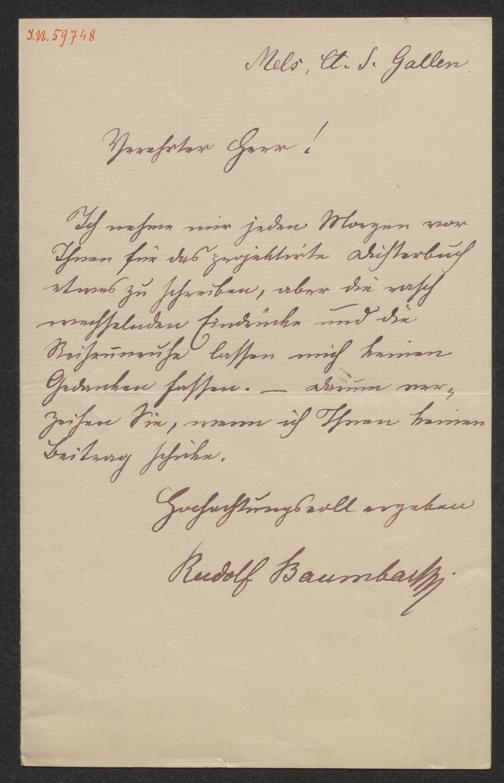 I.N. 59748
Mels, Ct. S. Gallen
Verehrter Herr!
Ich nehme mir jeden Morgen vor
Ihnen für das projektirte Dichterbuch
etwas zu schreiben, aber die rasch
wechselnden Eindrücke und die
Reiseunruhe lassen mich keinen
Gedanken fassen. — Darum ver-
zeihen Sie, wenn ich Ihnen keinen
Beitrag schicke.
Hochachtungsvoll ergeben
Rudolf Baumbach.